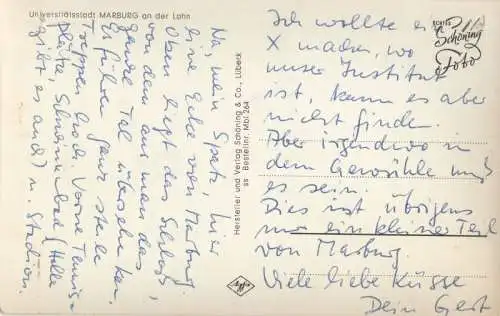 Universitätsstadt MARBURG an der Lahn
Na, mein Spatz, hier
eine Ecke von Marburg.
Oben liegt das Schloss,
von dem aus man das
ganze Tal übersehen kann.
Es führen ganz steile
Treppen hoch. Vorne Tennis-
plätze, Schwimmbad (Halle
gibt es auch) u. Stadion.
Hersteller und Verlag Schöning & Co., Lübeck
ss Bestellnr. Mbl 264
Agfa
ECHTES
Schöning
Foto
Ich wollte ein
X machen, wo
unser Institut
ist, kann es aber
nicht finden.
Aber irgendwo in
dem Gewühle muß
es sein.
Dies ist übrigens
nur ein kleiner Teil
von Marburg.
Viele liebe Küsse
Dein Gert